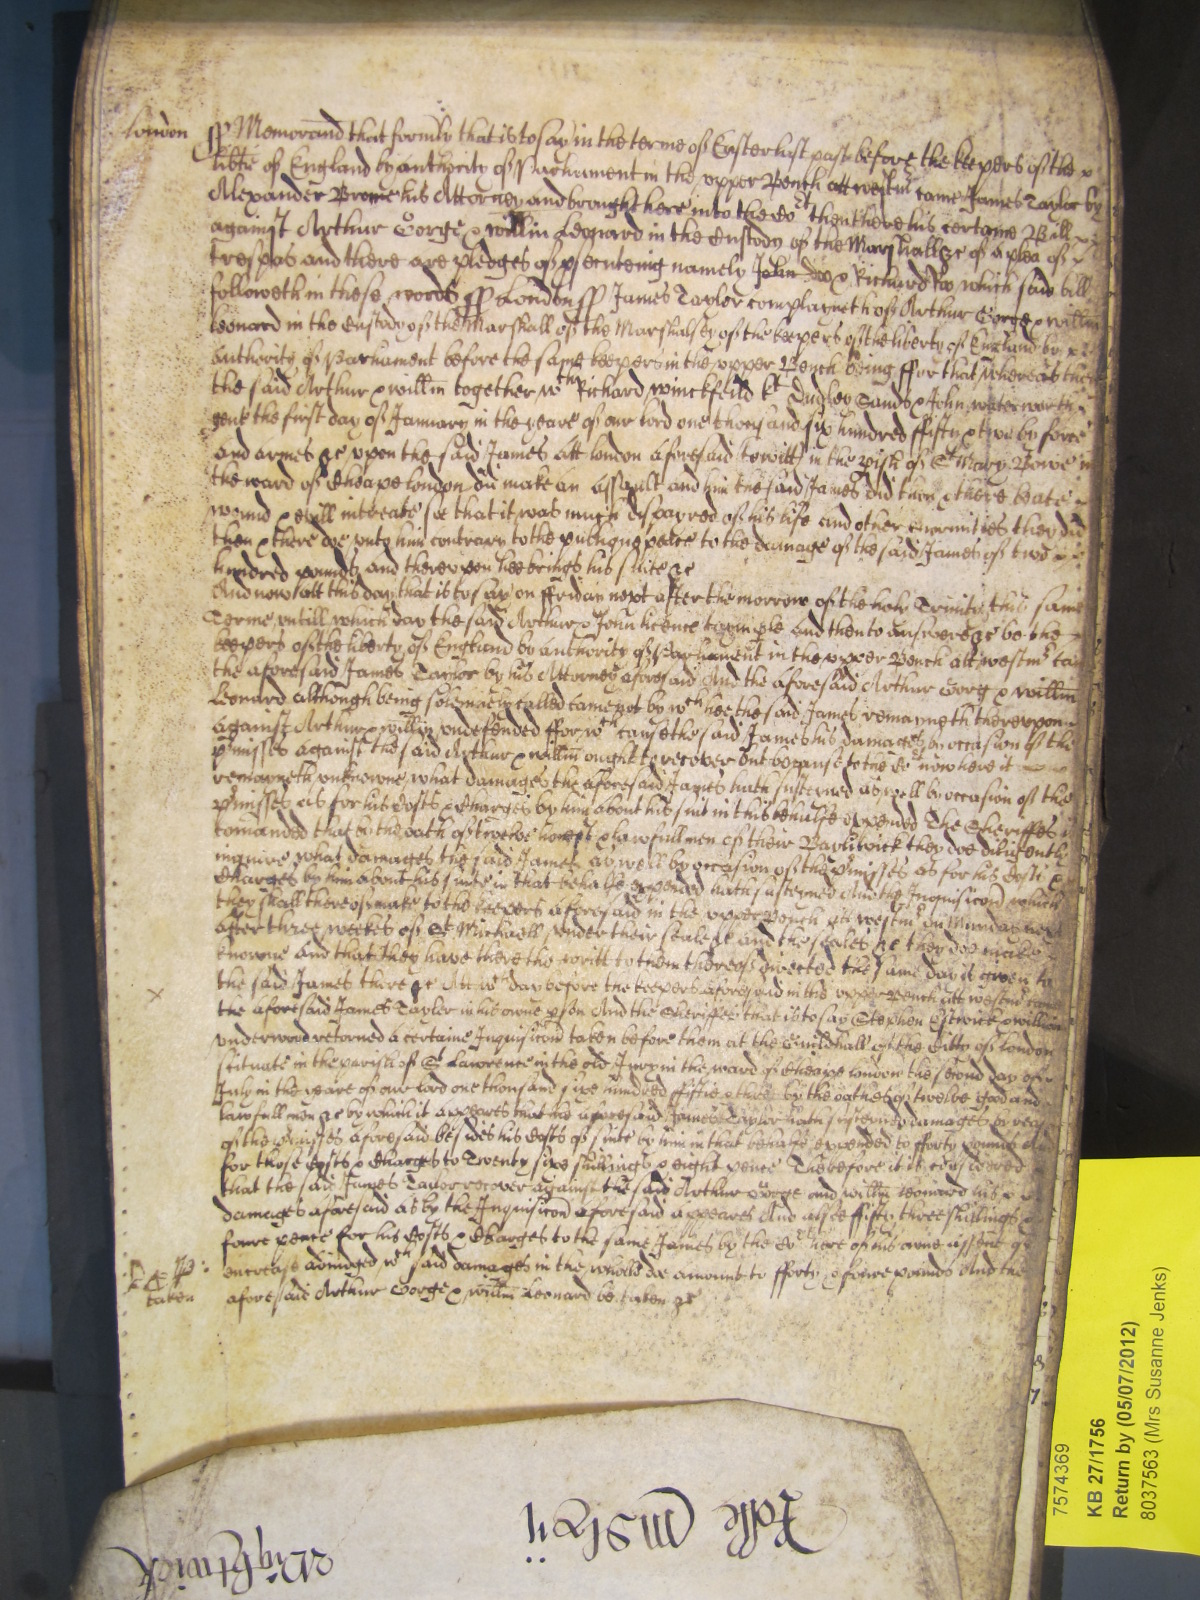 London ss Memorand that formly that is to say in the terme of Easter last past before the keepers of the
libtie of England by authority of Parliament in the upper Bench att westm came James Taylor by
Alexander Browne his Attorney and brought here into the Cort then there his certaine Bill
against Arthur Gorge & willm Leonard in the Custody of the Marshall &c of a plea of
trespas and there are pledges of psecuteing namely John Doo & Richard Roo which said bill
followeth in these words ss London ss James Taylor complayneth of Arthur Gorge & willm
Leonard in the Custody of the Marshall of the Marshalsey of the keepers of the liberty of England by
Authority of Parliament before the same keepers in the upper Bench being ffor that whereas they
the said Arthur & willm together wth Richard winckfeild kt Dudley Sands & John waterworth
gent the first day of January in the yeare of our lord one thousand six hundred ffifty & two by force
and armes &c upon the said James att london aforesaid (to witt) in the pish of St Mary Bowe in
the ward of Cheape london did make an Assault and him the said James did then & there beate
wound & evill intreate soe that it was much dispayred of his life and other enormities they did
then & there doe unto him contrary to the publique peace to the damage of the said James of two
hundred pounds and thereupon hee brings his suite &c
And now att this day that is to say on ffriday next after the morrow of the holy Trinity this same
Terme untill which day the said Arthur & John licence to imple and then to answere &c be the
keepers of the liberty of England by authority of Parliament in the upper Bench att westmr came
the aforesaid James Taylor by his Attorney aforesaid And the aforesaid Arthur Gorg & willm
Leonard although being solemnely called came not by wch hee the said James remayneth thereupon
against Arthur & willm undefended ffor wch cause the said James his damages by occasion of the
pmisses against the said Arthur & willm ought to recover but because to the Cort now here it
remayneth unknowne what damages the aforesaid James hath susteined as well by occasion of the
pmisses as for his Costs & Charges by him about his suit in this behalfe expended The Sheriffes is
comanded that by the oath of twelve honest & lawfull men of their Bayliwick they doe diligently
inquire what damages the said James as well by occasion of the pmisses as for his Costs &
Charges by him about his suite in that behalfe expended hath susteined And the Inquisicon which
they shall thereof make to the keepers aforesaid in the upper Bench att westmr on Munday next
after three weekes of St Michaell under their seale &c and the seales &c they doe make
knowne And that they have there the writt to them thereof directed the same day is given to
the said James there &c Att wch day before the keepers aforesaid in the upper Bench att westmr came
the aforesaid James Taylor in his owne pson And the Sheriffes that is to say Stephen Estwick & william
underwood returned a certaine Inquisicon taken before them at the Guildhall of the Citty of London
scituate in the parish of St Lawrence in the old Jury in the ward of Cheape London the second day of
July in the yeare of our lord one thousand six hundred ffiftie & three by the oathes of twelve good and
lawfull men &c by which it appeares that the aforesaid James Taylor hath susteined damages by reason
of the pmisses aforesaid besides his Costs of suite by him in that behalfe expended to fforty pounds And
for those Costs & Charges to Twenty six shillings & eight pence Therefore it is considered
that the said James Taylor recover against the said Arthur Gorge and willm Leonard his
damages aforesaid as by the Inquisicon aforesaid appeares And alsoe ffifty three shillings &
foure pence for his Costs & Charges to the same James by the Cort here of his owne assent of
encrease adiudged wch said damages in the whole doe amount to fforty & foure pounds And the
taken aforesaid Arthur Gorge & willm Leonard be taken &c
Rolle
Wightwick
7574369
KB 27/1756
Return by (05/07/2012)
8037563 (Mrs Susanne Jenks)